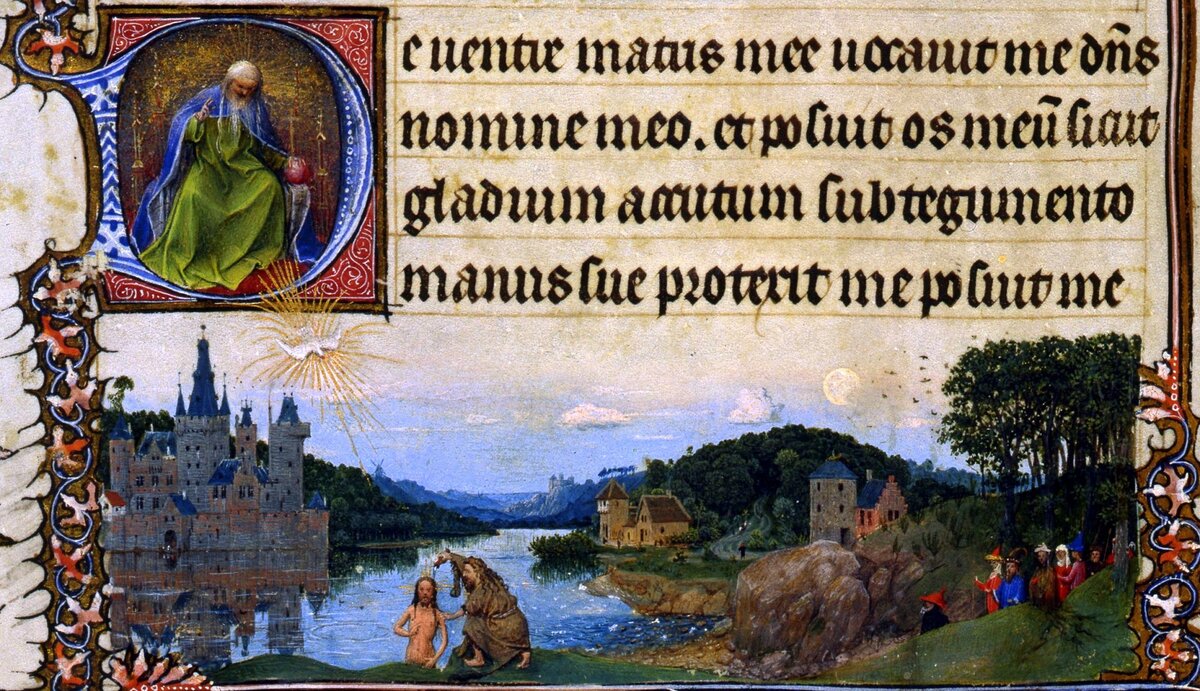 De uentre matris mee uocauit me dn̄s
nomine meo. et posuit os meū sicut
gladium accutum sub tegumento
manus sue protexit me posuit me